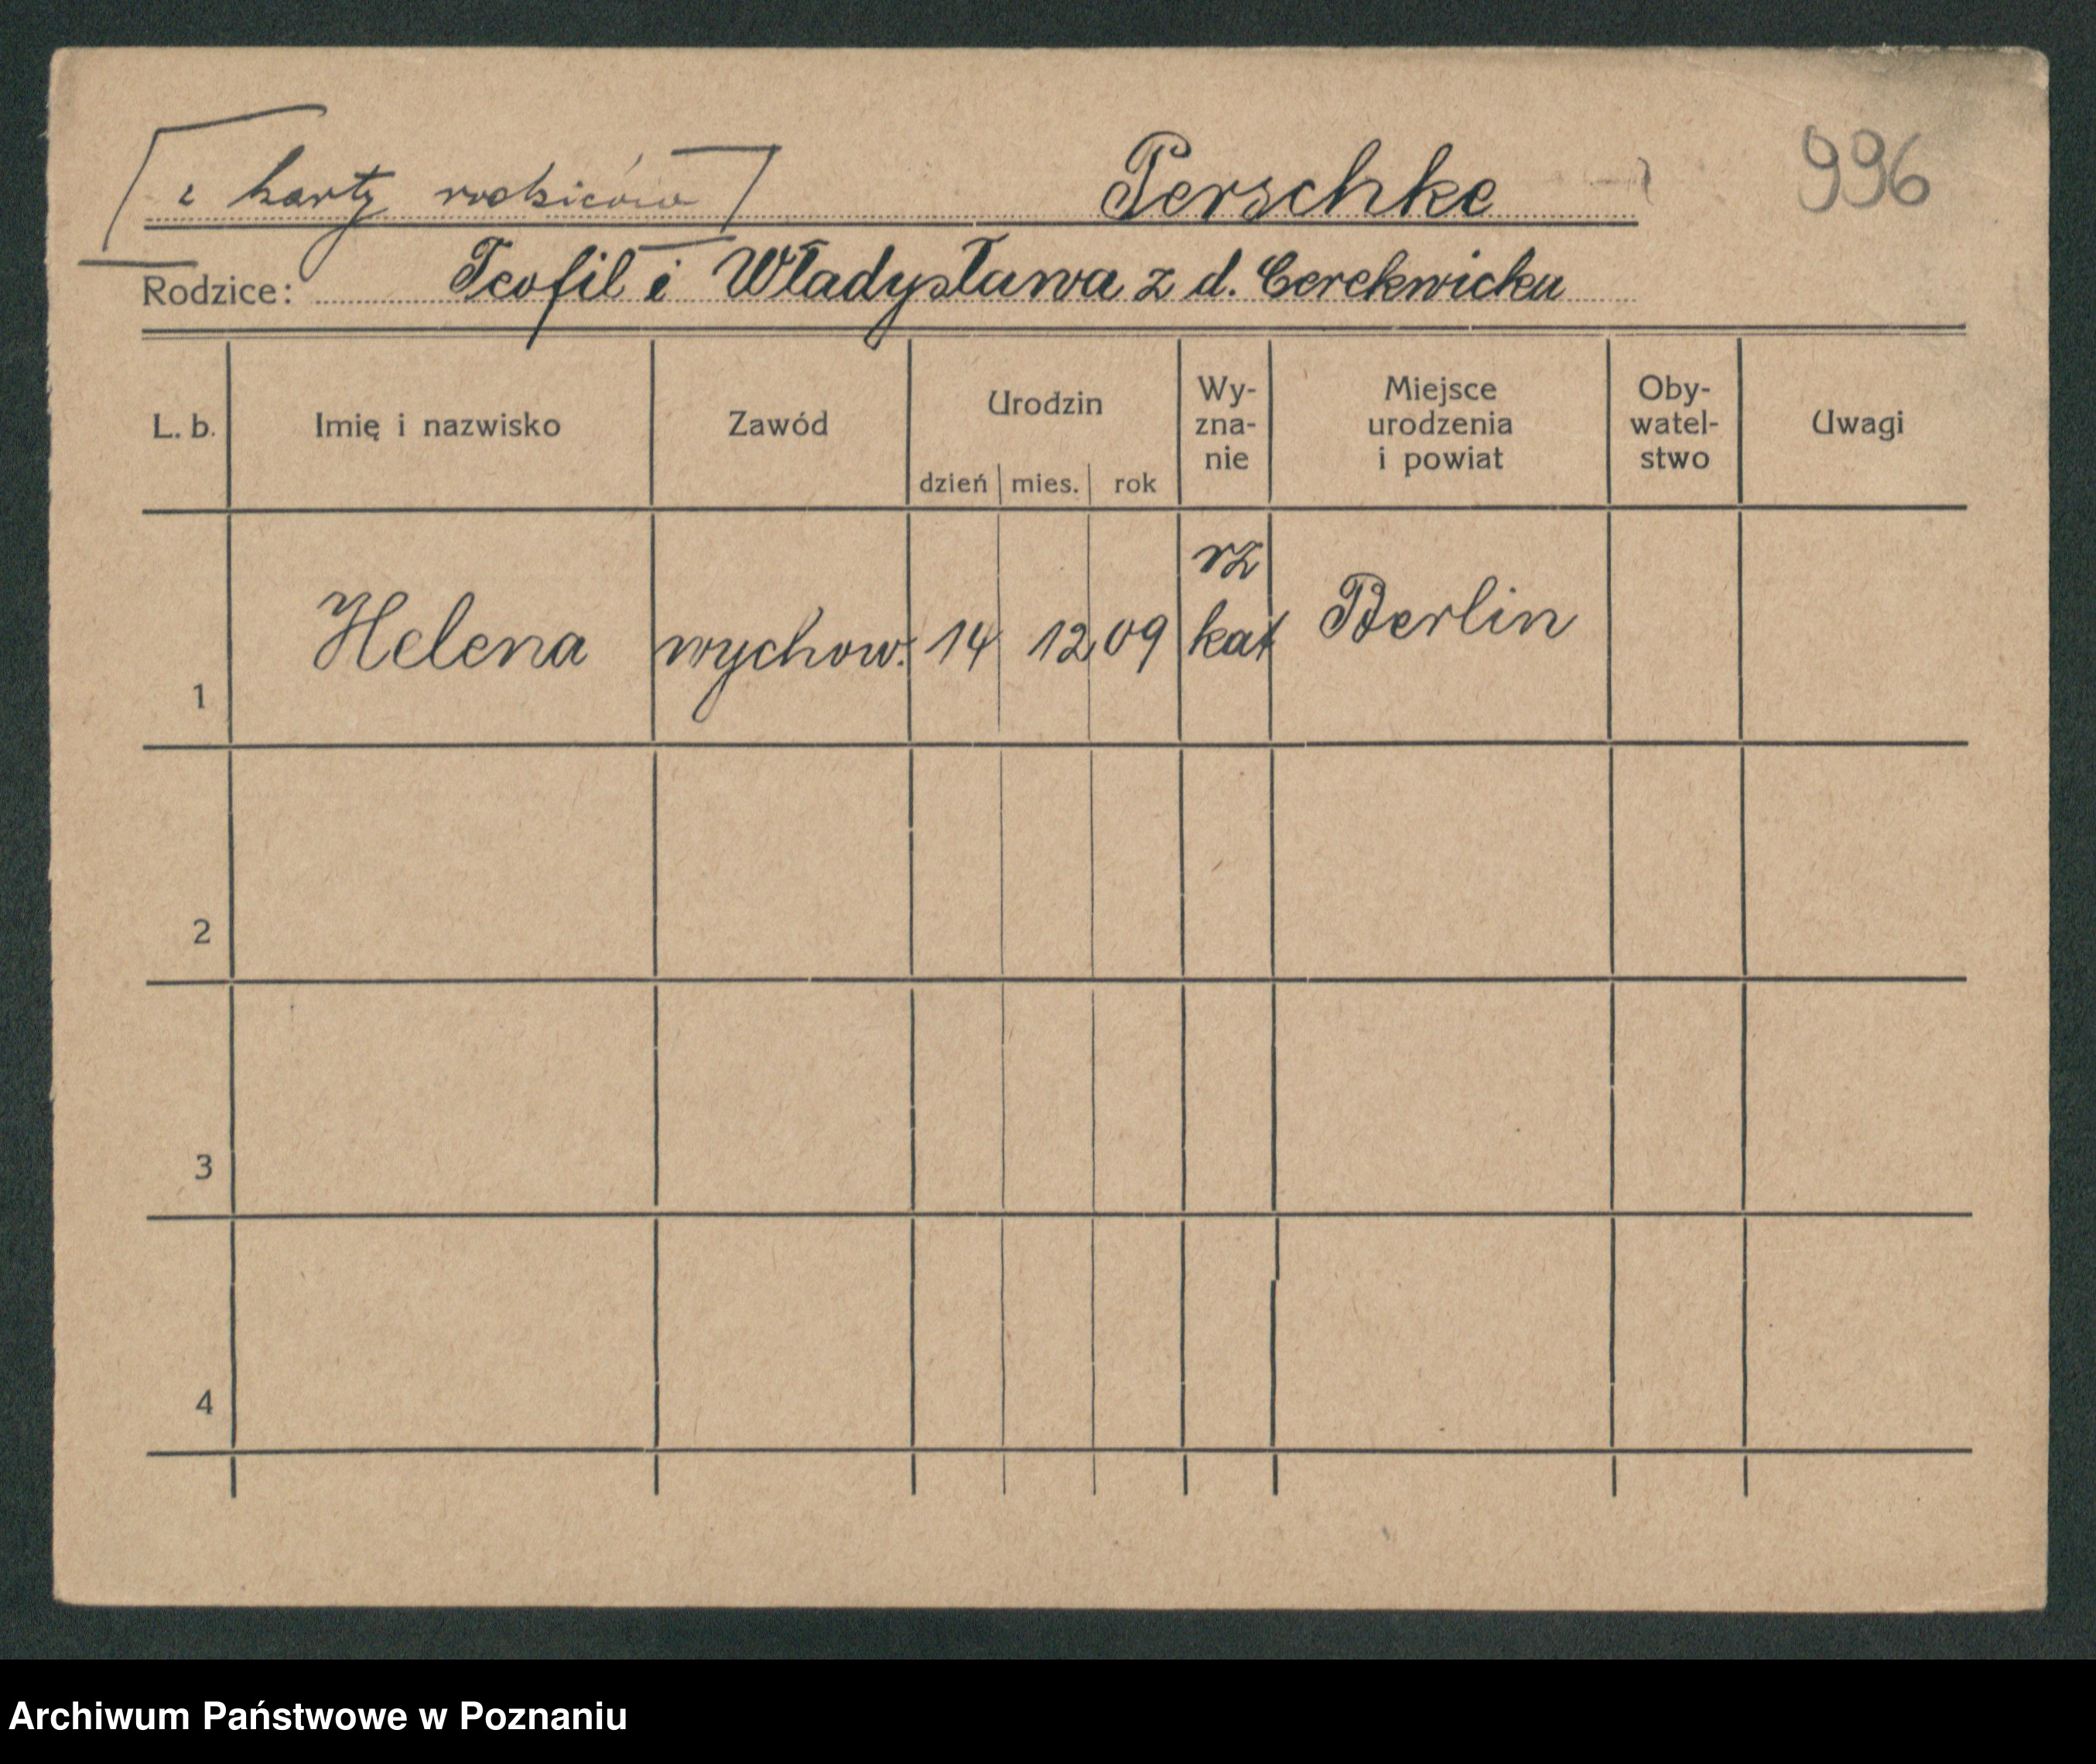 [z karty rodziców] Perschke 996
Rodzice: Teofil i Władysława z d. Cerekwicka
L. b. Imię i nazwisko Zawód Urodzin dzień mies. rok Wy-zna-nie Miejsce urodzenia i powiat Oby-watel-stwo Uwagi
1 Helena wychow. 14 12 09 rz kat Berlin
2
3
4
Archiwum Państwowe w Poznaniu